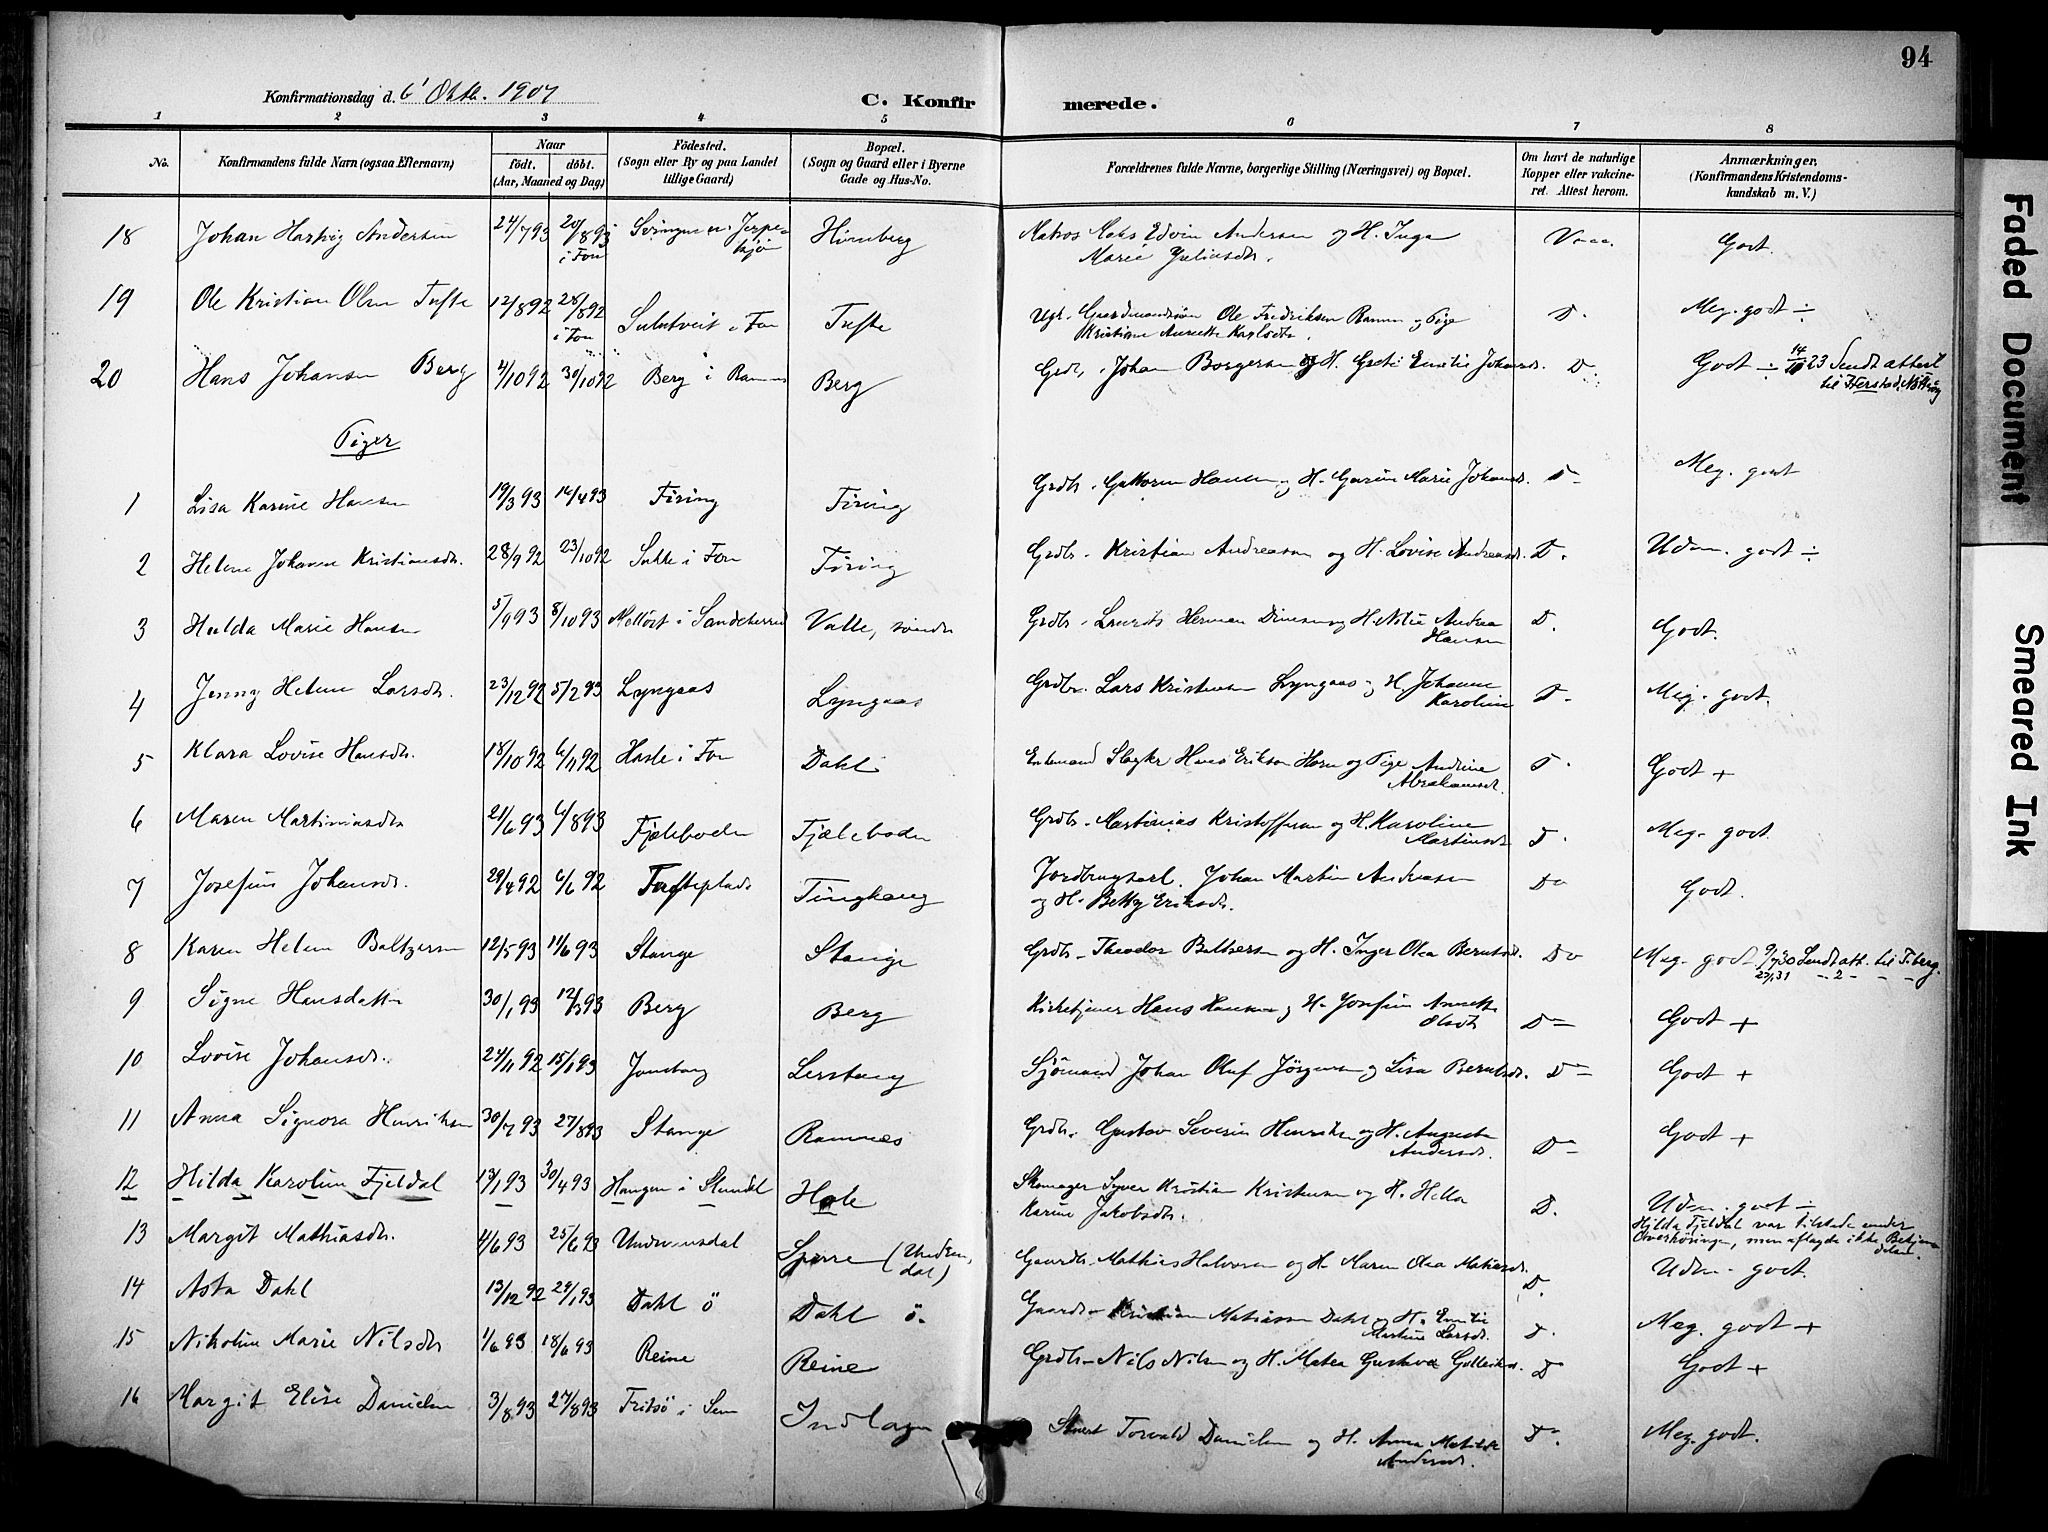 94
Konfirmationsdag d. 6' Oktb. 1907
C. Konfirmerede.
1 2 3 4 5 6 7 8
No.
Konfirmandens fulde Navn (ogsaa Efternavn)
Naar
födt. döbt.
(Aar, Maaned og Dag)
Födested.
(Sogn eller By og paa Landet
tillige Gaard)
Bopæl.
(Sogn og Gaard eller i Byerne
Gade og Hus-No.
Forældrenes fulde Navne, borgerlige Stilling (Næringsvei) og Bopæl.
Om havt de naturlige
Kopper eller vakcine-
ret. Attest herom.
Anmærkninger.
(Konfirmandens Kristendoms-
kundskab m. V.)
18 Johan Hartvig Andersen 24/7 93 20/8 93 i Fon Hirnberg
Edvin Andersen og H. Inga
Marie Juliusdtr. Godt.
19 Ole Kristian Olsen Tufte 12/8 92 28/8 92 i Fon Sulutveit i Fon Tufte
Ugt. Gaardmandssön Ole Fredriksen Ramnes og Pige
Kristiane Annette Karlsdtr. D. Meg. godt ÷
20 Hans Johansen Berg 4/10 92 30/10 92 Berg i Ramnes Berg
Grdb. Johan Borgersen og H. Grete Emilie Johansd. D. Godt ÷ 14/10 23 Sendt attest
Piger
1 Lisa Karine Hansen 19/3 93 16/4 93 Firing Firing
Grdb. Guttorm Hansen og H. Gurine Marie Johansd. D Meg. godt
2 Helene Johanne Kristiansdtr. 28/9 92 23/10 92 Sukke i Fon Firing
Grdb. Kristian Andreassen og H. Lovise Andreasd. D. Udm. godt ÷
3 Hulda Marie Hansen 5/9 93 8/10 93 i Sandeherred Valle, söndre
Grdb. Laurits Herman og H. Andrea
Hansen D. Godt.
4 Jenny Helene Larsdtr. 23/12 92 5/2 93 Lyngaas Lyngaas
Grdbr. Lars Kristensen Lyngaas og H. Johanne
Karoline D. Meg. godt.
5 Klara Lovise Hansdtr. 18/10 92 6/11 92 Hasle i Fon Dahl
Enkemand Hans Eriksen Horn og Pige Andrine
Abrahamsd. D. Godt +
6 Maren Martiniusdtr. 21/6 93 6/8 93 Fjæleboden Fjæleboden
Grdb. Martinius Kristoffersen og H. Karoline
Martinsd. D. Meg. godt.
7 Josefine Johansdtr. 29/4 92 6/6 92 Tufteplads Tinghaug
Jordbrugsarb. Johan Martin Andreasen
og H. Betty Eriksdtr. Do Godt.
8 Karen Helene Baltzersen 12/5 93 11/6 93 Stange Stange
Grdb. Theodor Baltzersen og H. Inger Olea Berntsd. Do Meg. godt 9/7 30 Sendt att. til Tberg.
9 Signe Hansdatter 30/1 93 12/3 93 Berg Berg
Kirketjener Hans Hansen og H. Josefine Annette
Olsdtr D Godt +
10 Lovise Johansdtr. 24/11 92 15/1 93 Jonsberg Lerstang
Sjömand Johan Oluf Jörgensen og Lisa Berntsdt. D Godt +
11 Anna Signora Henriksen 30/7 93 27/8 93 Stange Ramnes
Grdb. Gustav Severin Henriksen og H. Augusta
Andersd. D Godt +
12 Hilda Karoline Fjeldal 13/1 93 30/4 93 Haugen i Hole
Skomager Syver Kristian Kristensen og H. Hella
Karine Jakobsdtr. D. Udm. godt ÷
Hilda Fjeldal var tilstede under
Overhöringen, men aflagde ikke Bekjen-
delsen.
13 Margit Mathiasdtr. 4/6 93 25/6 93 Undrumsdal Sperre (Undrumsdal)
Gaardb. Mathias Halvorsen og H. Maren Olea Mathiasd. D. Udm. godt.
14 Asta Dahl 13/12 92 29/1 93 Dahl ö Dahl ö.
Gaardb. Kristian Mathiassen Dahl og H. Emilie
Martine Larsd. D. Meg. godt +
15 Nikoline Marie Nilsdtr 1/6 93 18/6 93 Reine Reine
Grdb. Nils Nilsen og H. Matea Gustava D Godt +
16 Margit Elise Danielsen 3/8 93 27/8 93 Fritsö i Sem
Torvald Danielsen og H. Anna Matilde
Andersd. D. Meg. godt.
Faded Document
Smeared Ink